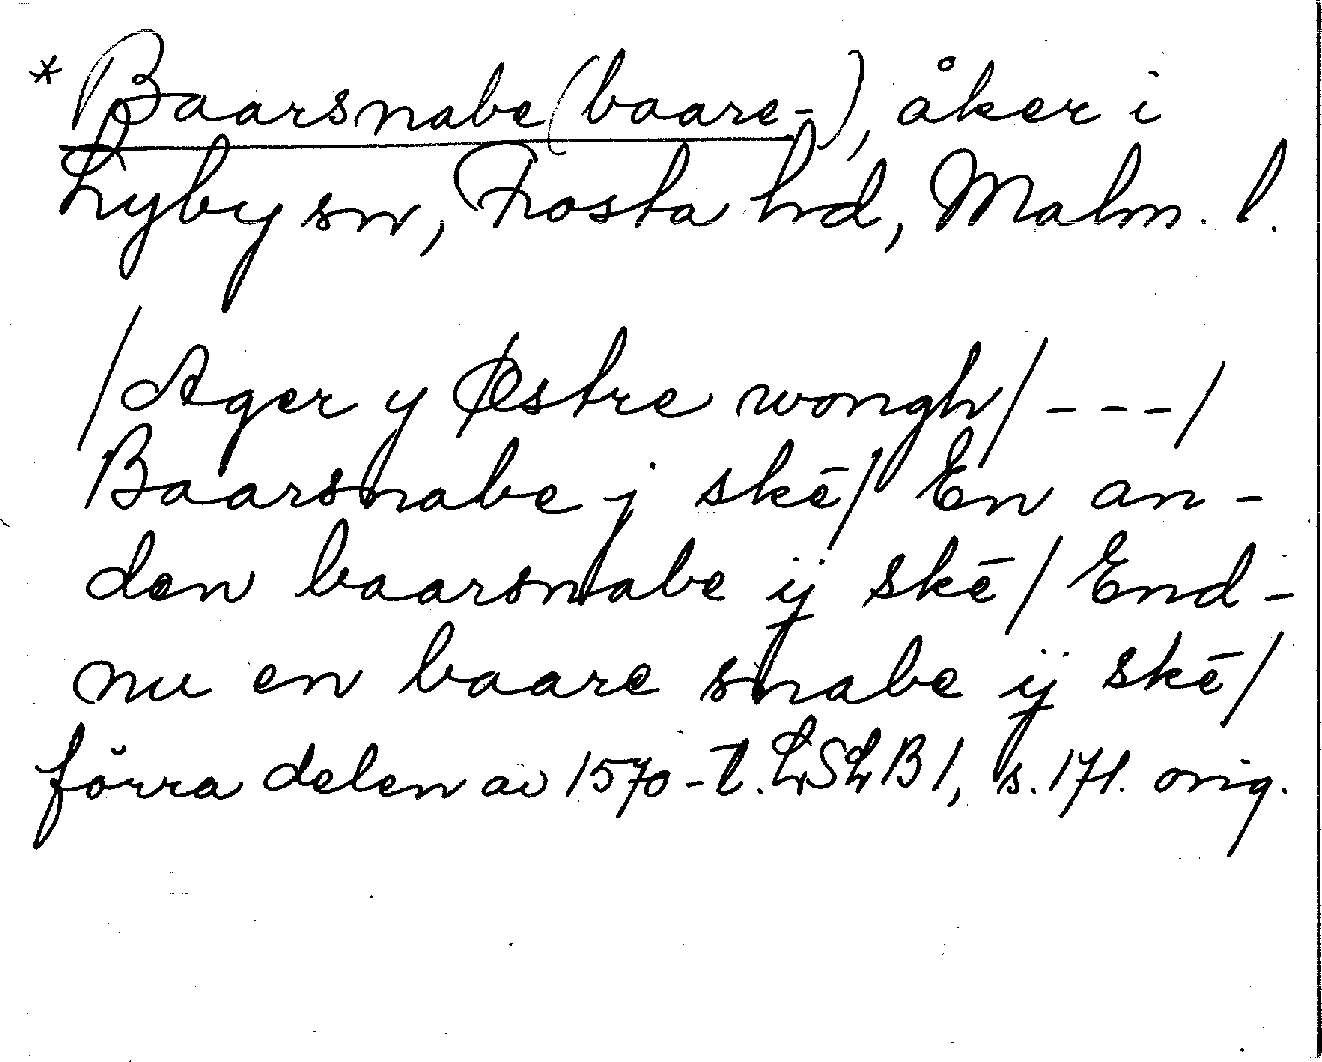 * Baarsnabe (baare-), åker i
Lyby sn, Frosta hd, Malm. l.
/Ager y Østre wongh/ - - - /
Baarsnabe j skē/ En an-
den baarsnabe ij skē/ End-
nu en baare snabe ij skē/
förra delen av 1570-t. LSLB 1, s. 171. orig.